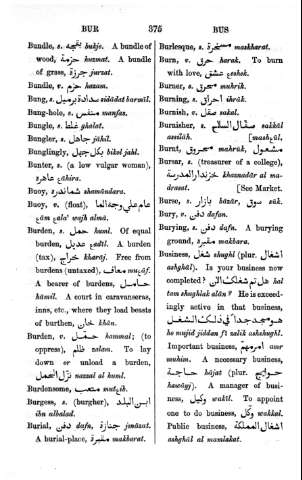 BUR
375
BUS
Bundle, s. بقجه bukje. A bundle of
wood, حزمة huzmat. A bundle
of grass, جرزة jurzat.
Bundle, v. حزم hazam.
Bung, s. سدادة برميل sidádat barmíl.
Bung-hole, s. منفس manfas.
Bungle, s. غلط ghalat.
Bungler, s. جاهل jáhil.
Bunglingly, بكل جهل bikol jahl.
Bunter, s. (a low vulgar woman),
عاهرة ȝáhira.
Buoy, s. شمندورة shamándura.
Buoy, v. (float), عام علي وجه الما
ȝám ȝala' wajh almá.
Burden, s. حمل huml. Of equal
burden, عديل ȝadíl. A burden
(tax), خراج kharáj. Free from
burdens (untaxed), معاف muȝáf.
A bearer of burdens, حامل
hámil. A court in caravanseras,
inns, etc., where they load beasts
of burthen, خان khán.
Burden, v. حمل hammal; (to
oppress), ظلم zalam. To lay
down or unload a burden,
نزل الحمل nazzal al huml.
Burdensome, متعب mutȝib.
Burgess, s. (burgher), ابن البلد
ibn albalad.
Burial, دفن dafn, جنازة jinázat.
A burial-place, مقبرة makbarat.
Burlesque, s. مسخرة maskharat.
Burn, v. حرق harak. To burn
with love, عشق ȝeshek.
Burner, s. محرق muhrik.
Burning, s. احراق ihrák.
Burnish, v. صقل sakal.
Burnisher, s. صقال السلاح sakkál
assiláh.
Burnt, محروق mahrúk, مشعول [mashȝúl.
Bursar, s. (treasurer of a college),
خزندار المدرسة khaznadár al ma-
drasat. [See Market.
Burse, s. بازار bázár, سوق súk.
Bury, v. دفن dafan.
Burying, s. دفن dafn. A burying
ground, مقبرة makbara.
Business, شغل shughl (plur. اشغال
ashghál). Is your business now
completed? هل تم شغلك الان hal
tam shughlak alán? He is exceed-
ingly active in that business,
هو مجد جدا في ذلك الشغل
he mujid jiddan fí zalik ashshughl.
Important business, امر مهم amr
muhim. A necessary business,
حاجة hájat (plur. حوايج
hawáyj). A manager of busi-
ness, وكيل wakíl. To appoint
one to do business, وكل wakkal.
Public business, اشغال المملكة
ashghál al mamlakat.